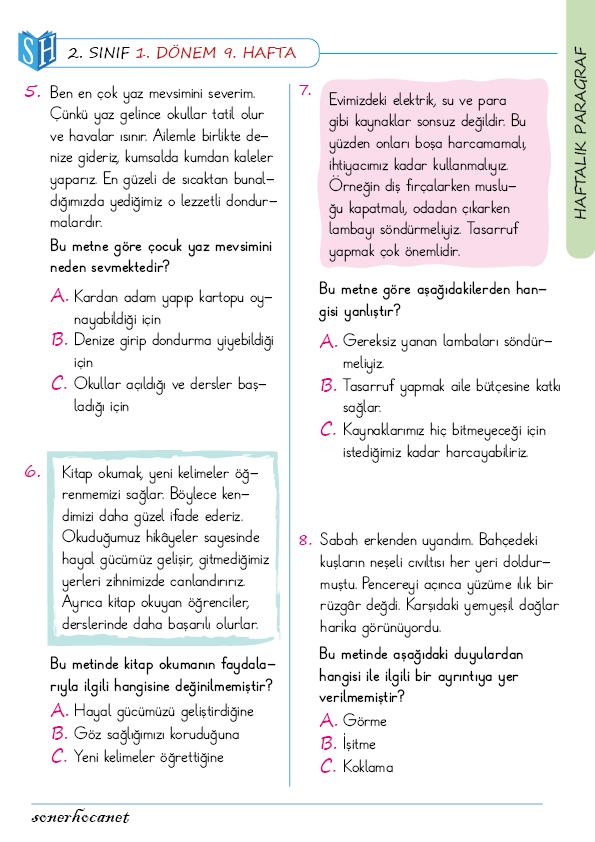 SH
2. SINIF 1. DÖNEM 9. HAFTA
HAFTALIK PARAGRAF
5. Ben en çok yaz mevsimini severim.
Çünkü yaz gelince okullar tatil olur
ve havalar ısınır. Ailemle birlikte de–
nize gideriz, kumsalda kumdan kaleler
yaparız. En güzeli de sıcaktan bunal–
dığımızda yediğimiz o lezzetli dondur–
malardır.
Bu metne göre çocuk yaz mevsimini
neden sevmektedir?
A. Kardan adam yapıp kartopu oy–
nayabildiği için
B. Denize girip dondurma yiyebildiği
için
C. Okullar açıldığı ve dersler baş–
ladığı için
6. Kitap okumak, yeni kelimeler öğ–
renmemizi sağlar. Böylece ken–
dimizi daha güzel ifade ederiz.
Okuduğumuz hikâyeler sayesinde
hayal gücümüz gelişir, gitmediğimiz
yerleri zihnimizde canlandırırız.
Ayrıca kitap okuyan öğrenciler,
derslerinde daha başarılı olurlar.
Bu metinde kitap okumanın faydala–
rıyla ilgili hangisine değinilmemiştir?
A. Hayal gücümüzü geliştirdiğine
B. Göz sağlığımızı koruduğuna
C. Yeni kelimeler öğrettiğine
7. Evimizdeki elektrik, su ve para
gibi kaynaklar sonsuz değildir. Bu
yüzden onları boşa harcamamalı,
ihtiyacımız kadar kullanmalıyız.
Örneğin diş fırçalarken muslu–
ğu kapatmalı, odadan çıkarken
lambayı söndürmeliyiz. Tasarruf
yapmak çok önemlidir.
Bu metne göre aşağıdakilerden han–
gisi yanlıştır?
A. Gereksiz yanan lambaları söndür–
meliyiz.
B. Tasarruf yapmak aile bütçesine katkı
sağlar.
C. Kaynaklarımız hiç bitmeyeceği için
istediğimiz kadar harcayabiliriz.
8. Sabah erkenden uyandım. Bahçedeki
kuşların neşeli cıvıltısı her yeri doldur–
muştu. Pencereyi açınca yüzüme ılık bir
rüzgâr değdi. Karşıdaki yemyeşil dağlar
harika görünüyordu.
Bu metinde aşağıdaki duyulardan
hangisi ile ilgili bir ayrıntıya yer
verilmemiştir?
A. Görme
B. İşitme
C. Koklama
sonerhocanet